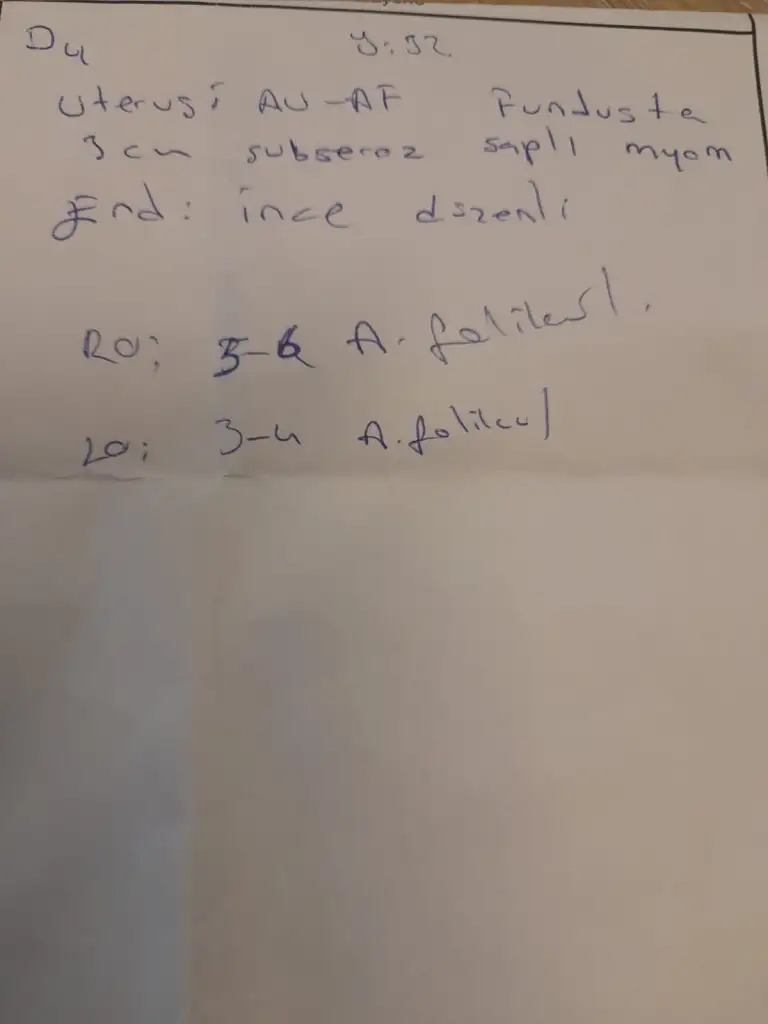 D4 Y:32
Uterus; AV-AF Fundusta
3 cm subseroz saplı myom
End: ince düzenli
RO; 5-6 A. folikül.
LO; 3-4 A. folikul